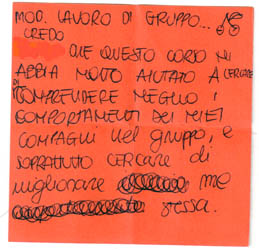 MOD. LAVORO DI GRUPPO...
CREDO
CHE QUESTO CORSO MI
ABBIA MOLTO AIUTATO A CERCARE
DI COMPRENDERE MEGLIO I
COMPORTAMENTI DEI MIEI
COMPAGNI nel GRUPPO, e
SOPRATTUTTO CERCARE di
migliorare me
stessa.